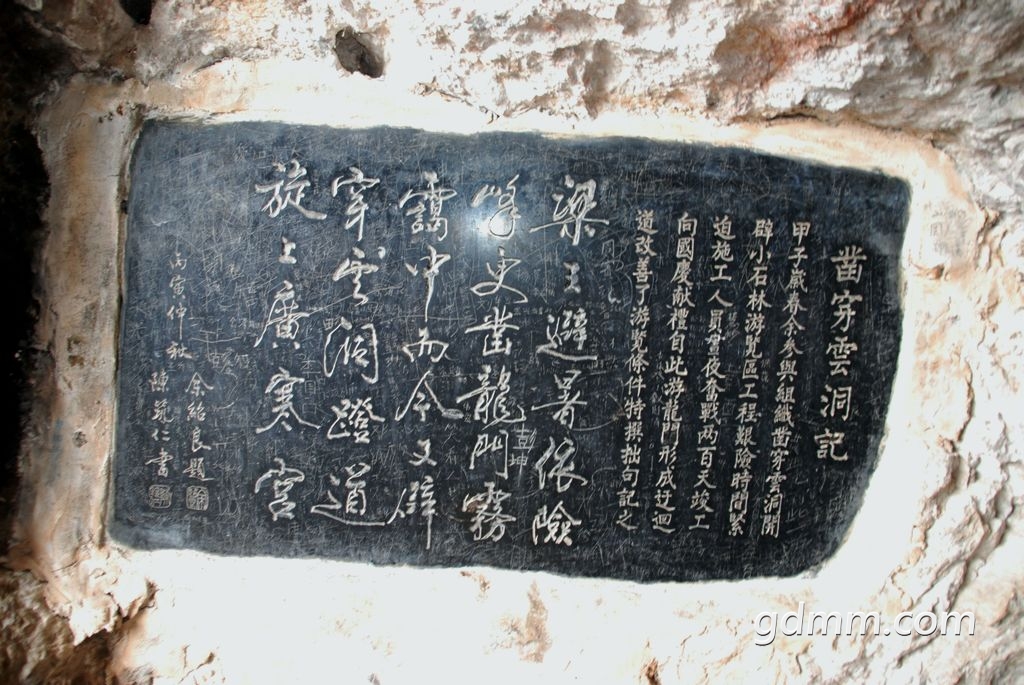 凿穿雲洞記
甲子歲春余参與組織凿穿雲洞開
辟小石林游覽區工程艱險時間緊
迫施工人員晝夜奮戰两百天竣工
向國慶献禮自此游龍門形成迂迴
道改善了游覽條件特撰拙句記之
梁王避暑依險
峰更凿龍門霧
靄中而今又辟
穿雲洞蹬道
旋上廣寒宮
丙寅仲秋
余紹良題
陳筑仁書
彭坤
gdmm.com